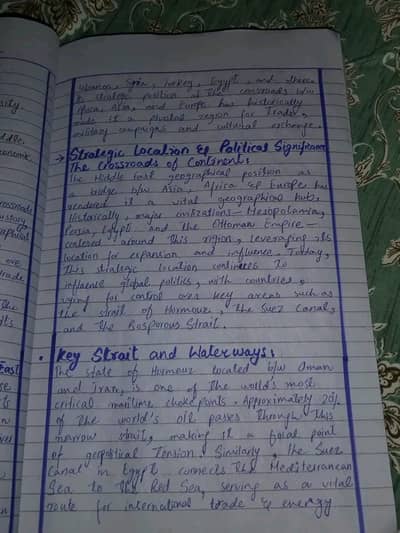 Lebanon, Syria, Turkey, Egypt, and others
strategic position at the crossroads b/w
Africa, Asia, and Europe has historically
made it a pivotal region for trade,
military campaigns and cultural exchange.
→ Strategic Location & Political Significance
The Crossroads of Continent:
The Middle East geographical position as
a bridge b/w Asia, Africa & Europe has
rendered it a vital geographical hub,
Historically, major civilizations – Mesopotamia,
Persia, Egypt and the Ottoman Empire –
centered around this region, leveraging its
location for expansion and influence. Today,
this strategic location continues to
influence global politics, with countries,
vying for control over key areas such as
the strait of Hormouz, the Suez Canal,
and the Bosporous Strait.
• Key Strait and Waterways:
The state of Hormouz located b/w Oman
and Iran, is one of the world's most
critical maritime chokepoints. Approximately 20%
of the world's oil passes through this
narrow strait, making it a focal point
of geopolitical Tension. Similarly, the Suez
Canal in Egypt connects the Mediterranean
Sea to the Red Sea, serving as a vital
route for international trade & energy